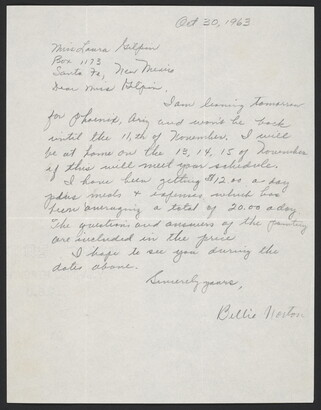 Oct 30, 1963
Miss Laura Gilpin
Box 1173
Santa Fe, New Mexico
Dear Miss Gilpin,
I am leaving tomorrow
for Phoenix, Ariz and won't be back
until the 11th of November. I will
be at home on the 13, 14, 15 of November
if this will meet your schedule.
I have been getting $12.00 a day
plus meals & expenses which has
been averaging a total of 20.00 a day.
The questions and answers of the
are included in the price.
I hope to see you during the
dates above.
Sincerely yours,
Billie Norton